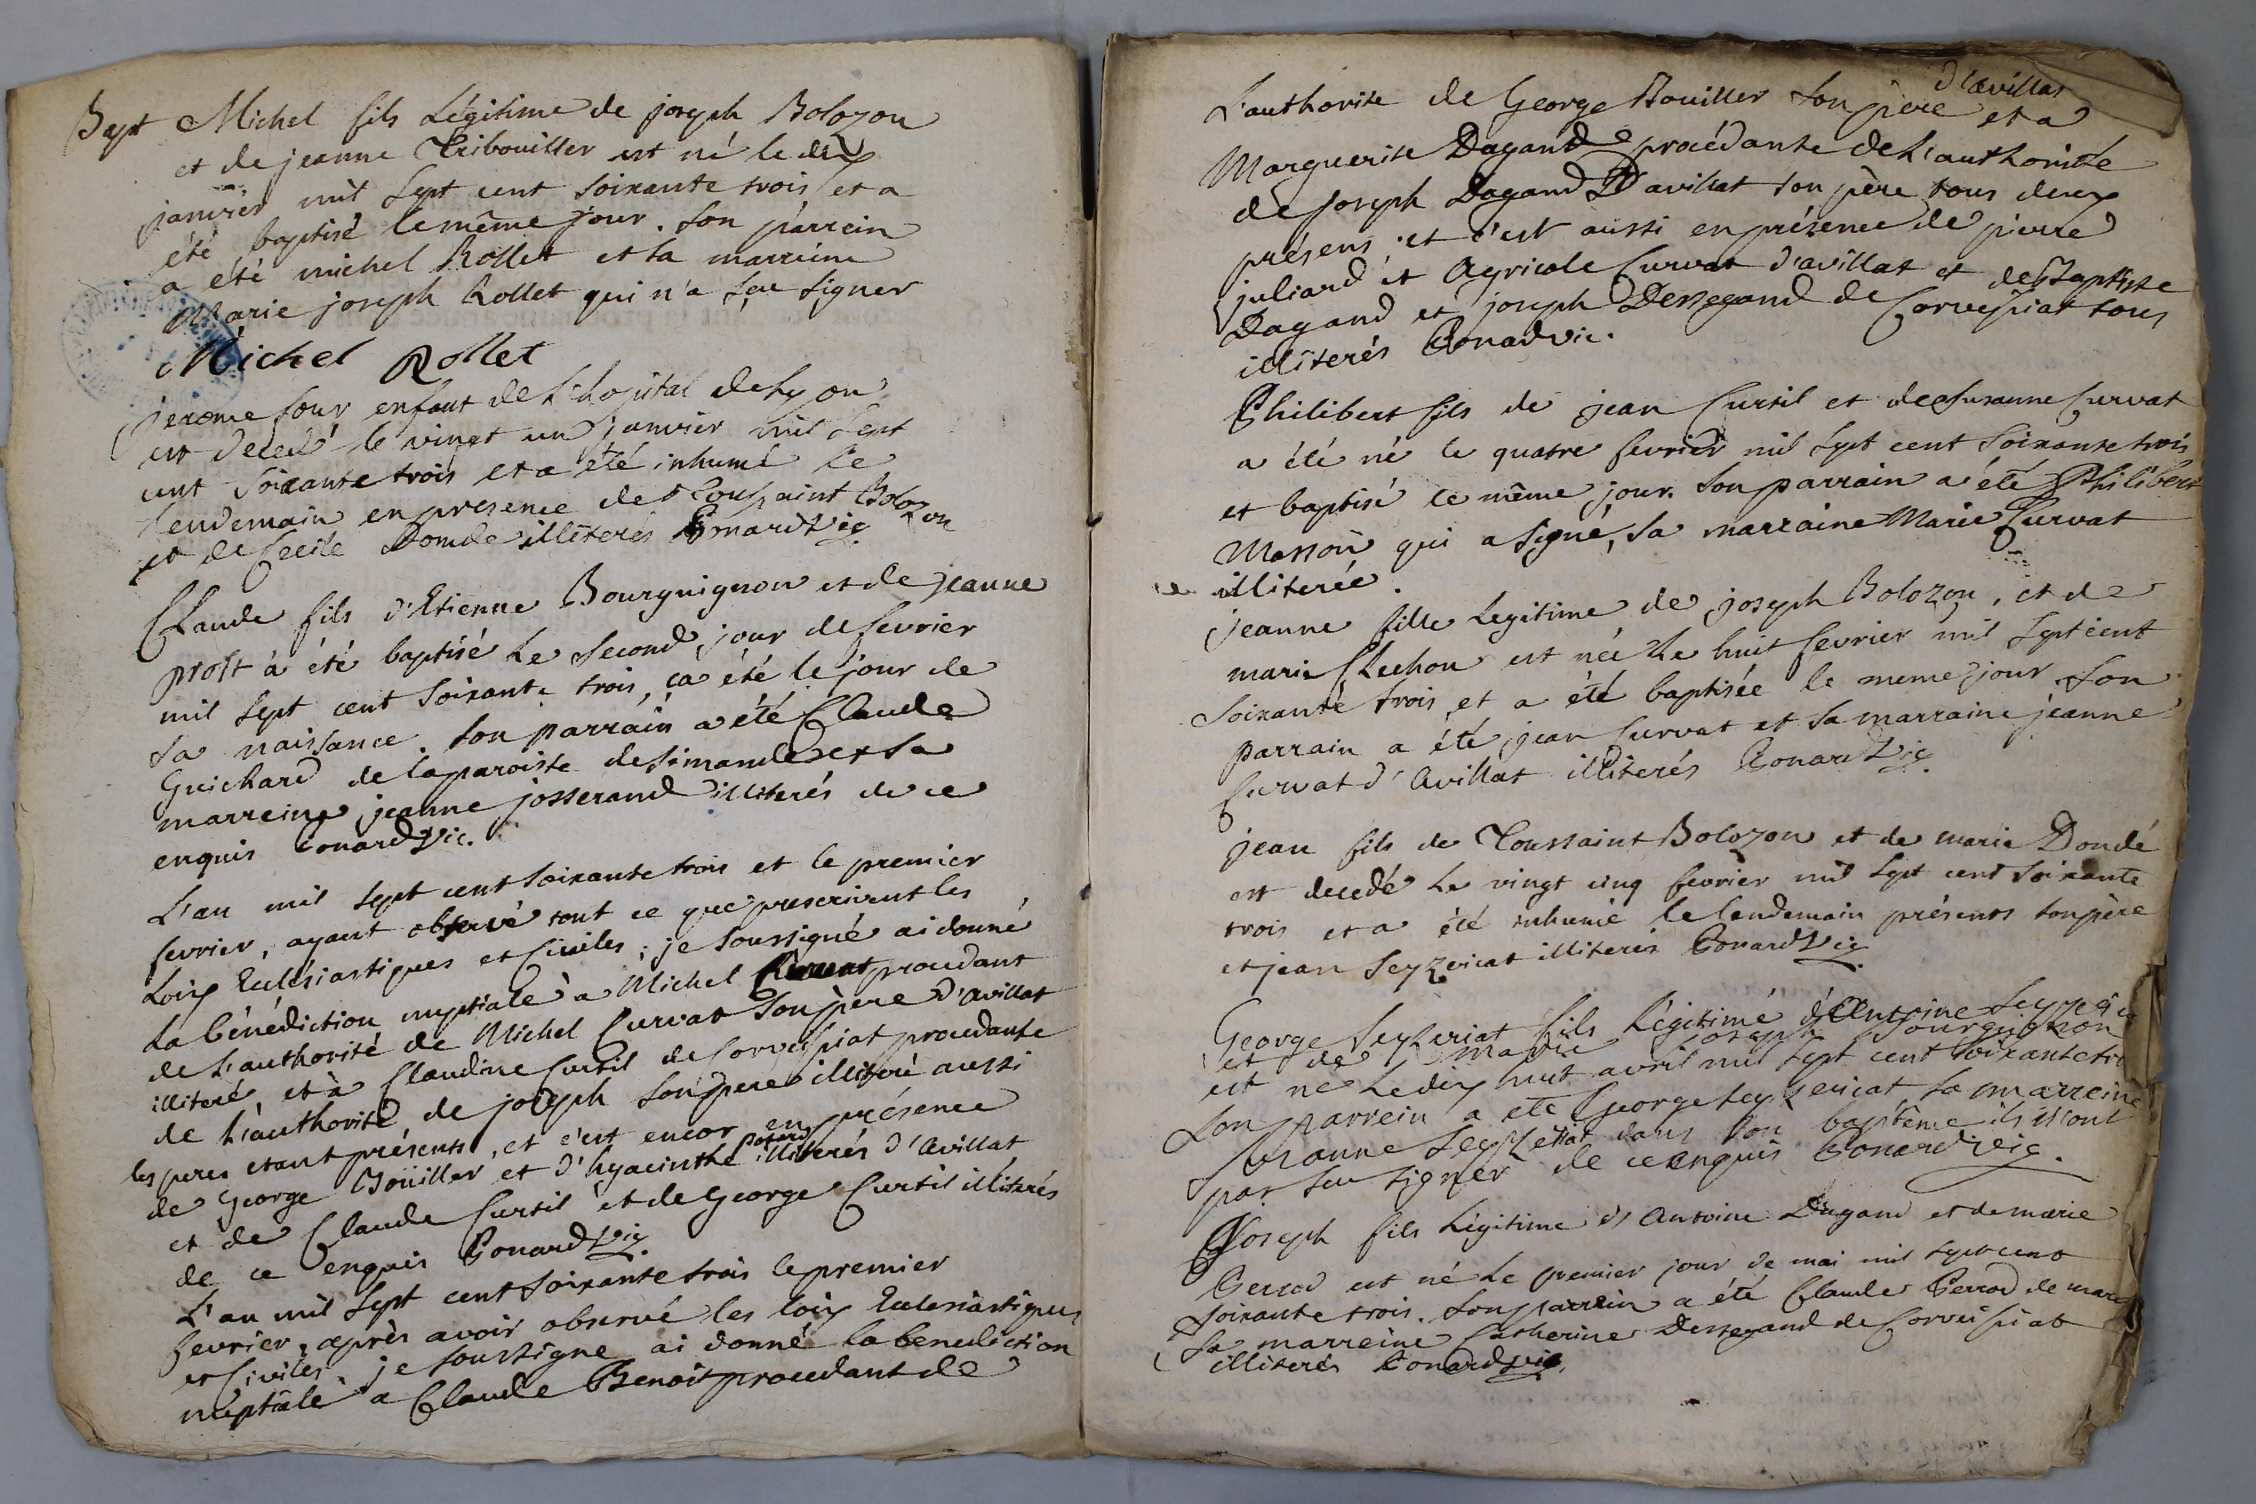 Bapt Michel fils Légitime de joseph Bolozon
et de jeanne Tribouiller est né le dix
janvier mil sept cent soixante trois et a
été baptisé le même jour. son parrein
a été michel Rollet et sa marreine
Marie joseph Rollet qui n'a sçu signer
Michel Rollet
jerome Four enfant de l'hopital de Lyon
est decedé le vingt un janvier mil sept
cent soixante trois et a été inhumé le
lendemain en presence de Toussaint Bolozon
et de Cecile Donde illiterés Gonard Vic.
Claude fils d'Etienne Bourguignon et de jeanne
prost à été baptisé Le second jour de fevrier
mil sept cent soixante trois, ça été le jour de
sa naissance. son parrain a été Claude
Guichard de la paroisse de simandre et sa
marreine jeanne josserand illiterés de ce
enquis Gonard Vic.
L'an mil sept cent soixante trois et le premier
fevrier, ayant observé tout ce que prescrivent les
Loix Eclésiastiques et Civiles, je soussigné ai donné
La bénédiction nuptiale à Michel Curvat procedant
de L'authorité de Michel Curvat son père d'avillat
illiteré, et à Claudine Curtil de Corvessiat procedante
de L'authorité de joseph son pere illiteré aussi
les peres etant présents, et c'est encor en présence
de George Boüiller et d'hyacinthe illiterés d'Avillat
et de Claude Curtil et de George Curtil illiterés
de ce enquis Gonard Vic.
L'an mil sept cent soixante trois le premier
fevrier, après avoir observé les loix Ecclesiastiques
et Civiles, je soussigne ai donné la benediction
nuptiale a Claude Benoit procedant de
d'avillat
L'authorité de George Bouiller son père et a
Marguerite Dagand procédante de L'authorité
de joseph Dagand D'avillat son père tous deux
présens, et c'est aussi en présence de pierre
juliard et Agricole Curvat d'avillat et de Baptiste
Dagand et joseph Dessegand de Corveyssiat tous
illiterés Gonard vic.
Philibert fils de jean Curtil et de susanne Curvat
a été né le quatre fevrier mil sept cent soixante trois
et baptisé le même jour. son parrain a été Philibert
Masson qui a signé, sa marraine Marie Curvat
illiterée.
jeanne fille Legitime de joseph Bolozon, et de
marie Clechon est née Le huit fevrier mil sept cent
soixante trois et a été baptisée le meme jour son
parrain a été jean Curvat et sa marraine jeanne
Curvat d'Avillat illiterés Gonard Vic.
jean fils de Toussaint Bolozon et de marie Dondé
est decedé Le vingt cinq fevrier mil sept cent soixante
trois et a été inhumé le lendemain présents son père
et jean Seyzeriat illiterés Gonard Vic.
George Seyzeriat fils Légitime d'Antoine
et de marie joseph Bourguignon
est né Le dix huit avril mil sept cent soixante
son parrein a été George Seyzeriat sa marreine
Seyzeriat dans son baptême ils n'ont
pas sçu signer de ce enquis Gonard Vic.
Joseph fils Légitime d'Antoine Dagand et de marie
Perrod est né Le premier jour de mai mil sept cent
soixante trois. son parrein a été Claude Perrod de
sa marreine Catherine Dessegand de Corvessiat
illiterés Gonard Vic.